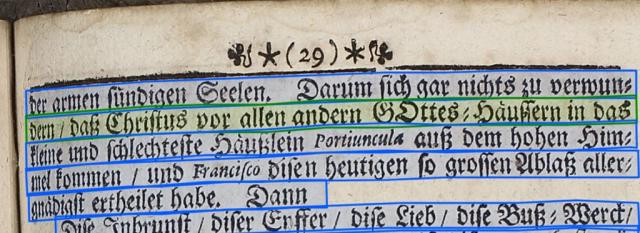 (29)
der armen sündigen Seelen. Darum sich gar nichts zu verwun-
dern / daß Christus vor allen andern GOttes-Häußern in das
kleine und schlechteste Häußlein Portiuncula auß dem hohen Him-
mel kommen / und Francisco disen heutigen so grossen Ablaß aller-
gnädigst ertheilet habe. Dann
Dise Inbrunst / diser Eyffer / dise Lieb / dise Buß-Werck /